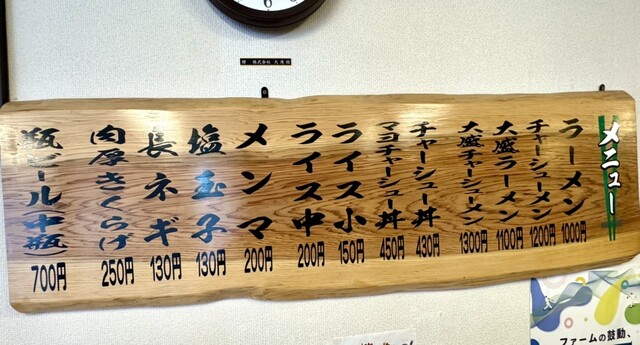 メニュー
ラーメン 1000円
チャーシューメン 1200円
大盛ラーメン 1100円
大盛チャーシューメン 1300円
チャーシュー丼 430円
マヨチャーシュー丼 450円
ライス小 150円
ライス中 200円
メンマ 200円
塩玉子 130円
長ネギ 130円
肉厚きくらげ 250円
瓶ビール(中瓶) 700円
ファームの鼓動、